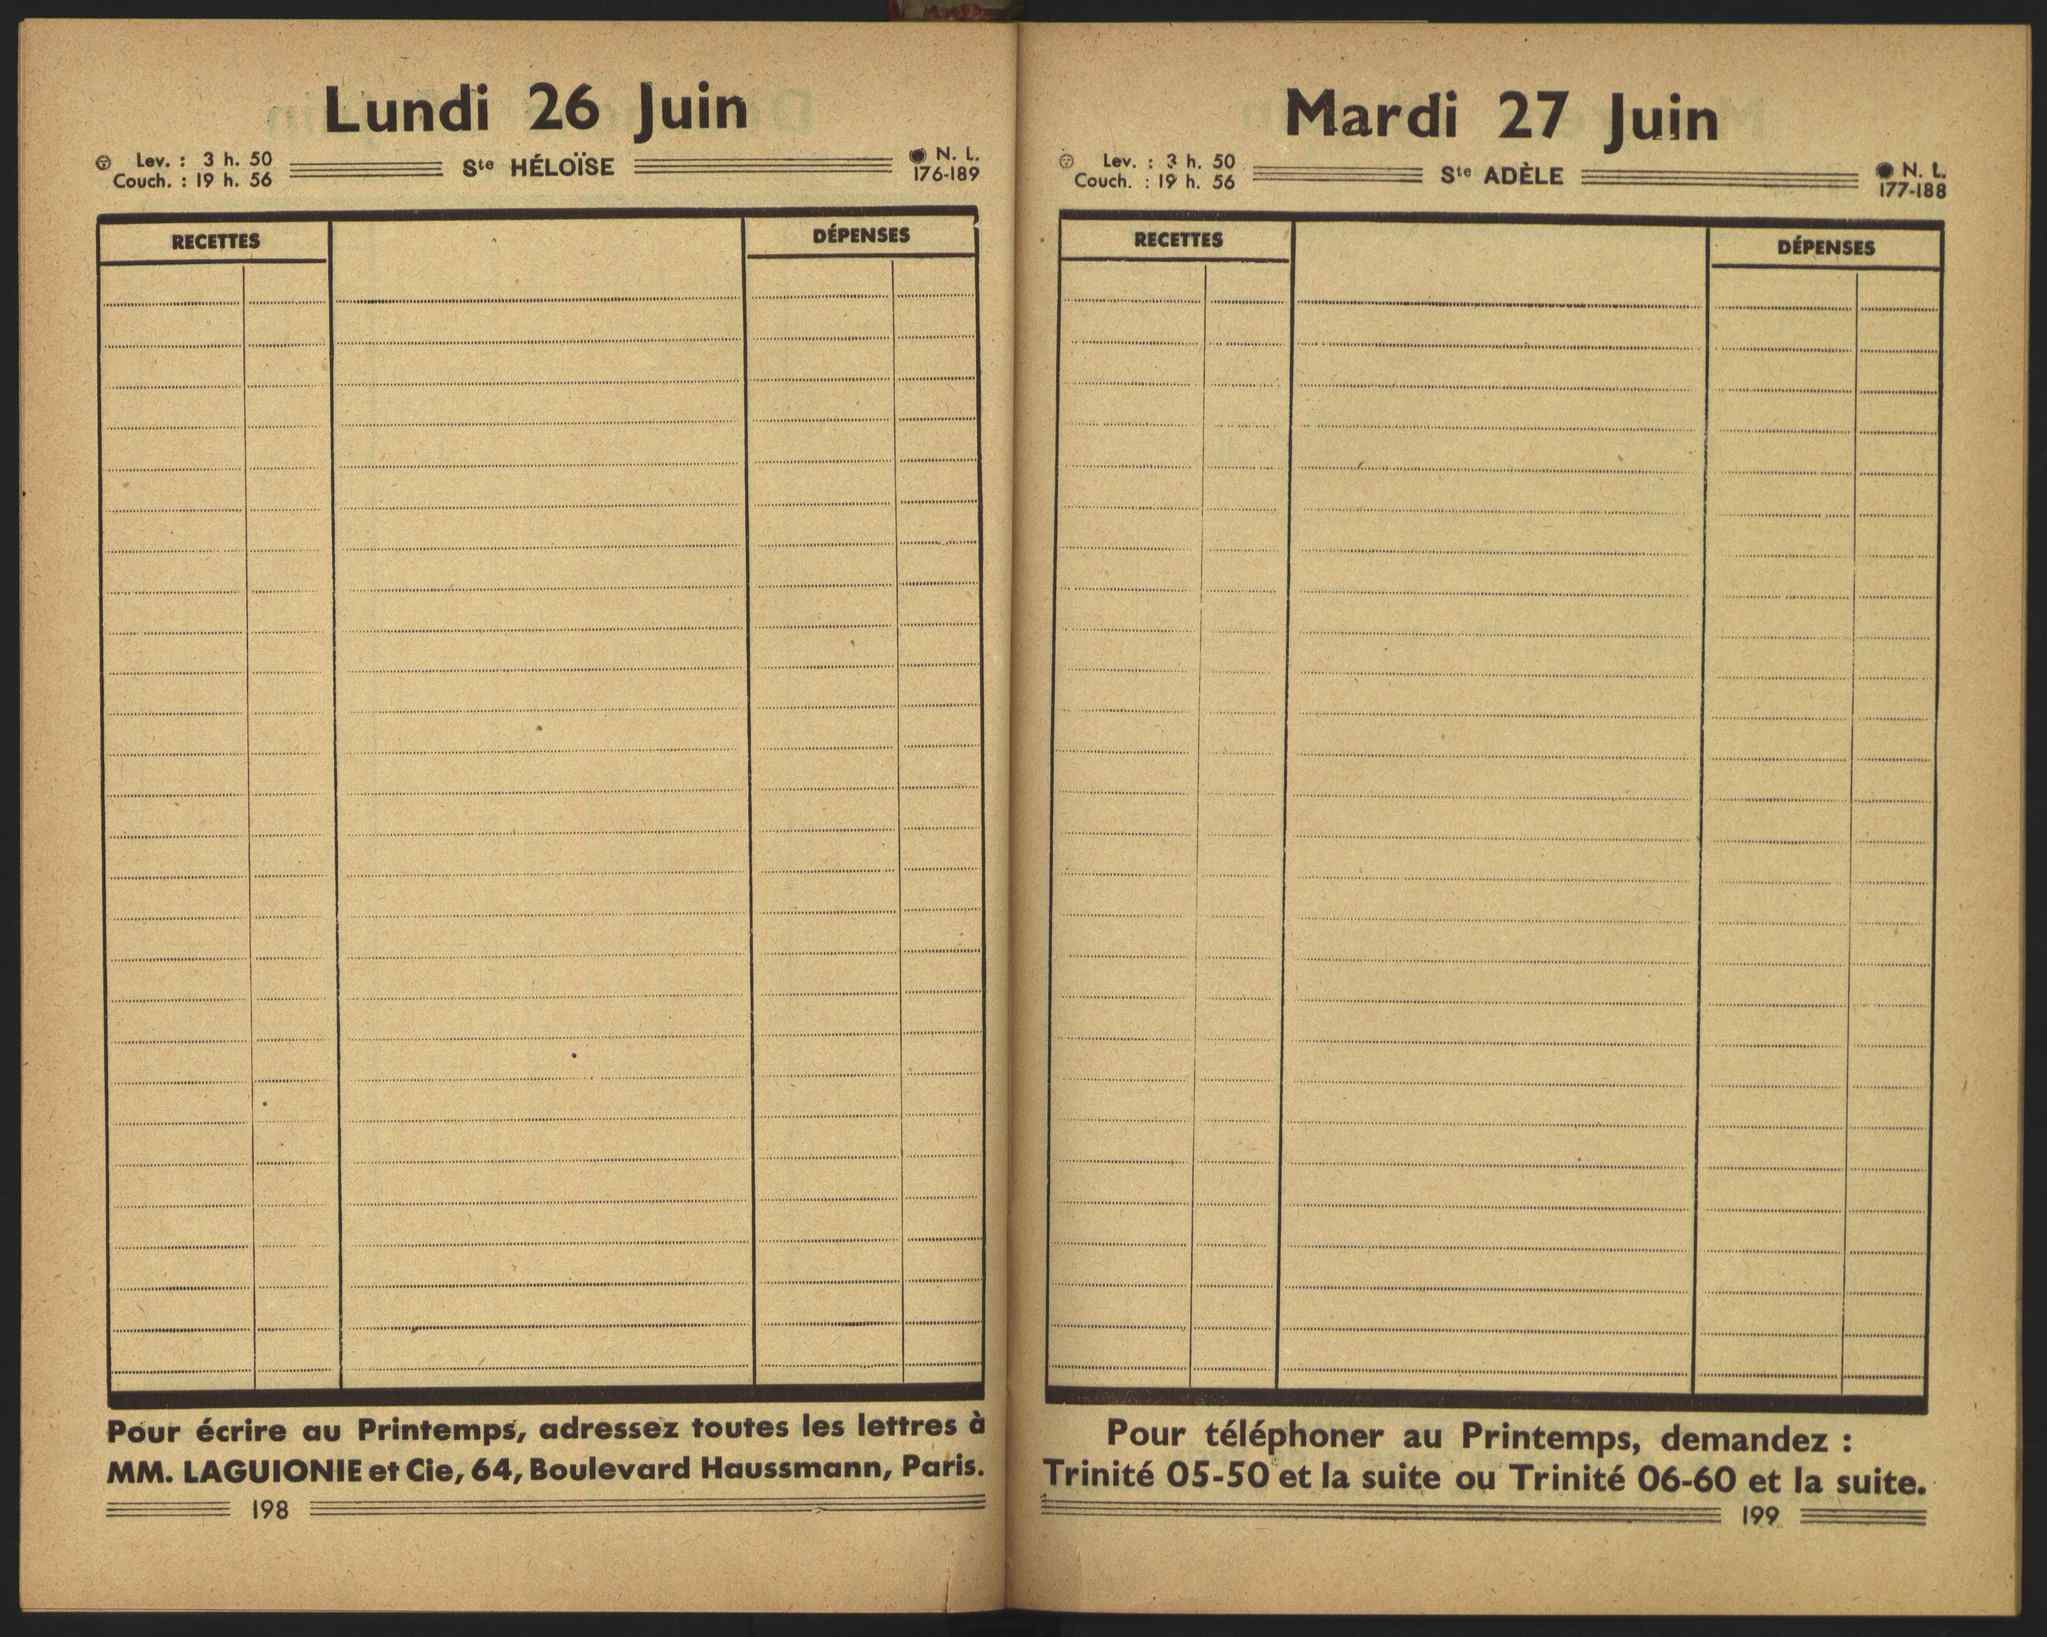 Lundi 26 Juin
Lev. : 3 h. 50
Couch. : 19 h. 56
Ste HÉLOÏSE
N. L.
176-189
RECETTES
DÉPENSES
Pour écrire au Printemps, adressez toutes les lettres à
MM. LAGUIONIE et Cie, 64, Boulevard Haussmann, Paris.
198
Mardi 27 Juin
Lev. : 3 h. 50
Couch. : 19 h. 56
Ste ADÈLE
N. L.
177-188
RECETTES
DÉPENSES
Pour téléphoner au Printemps, demandez :
Trinité 05-50 et la suite ou Trinité 06-60 et la suite.
199